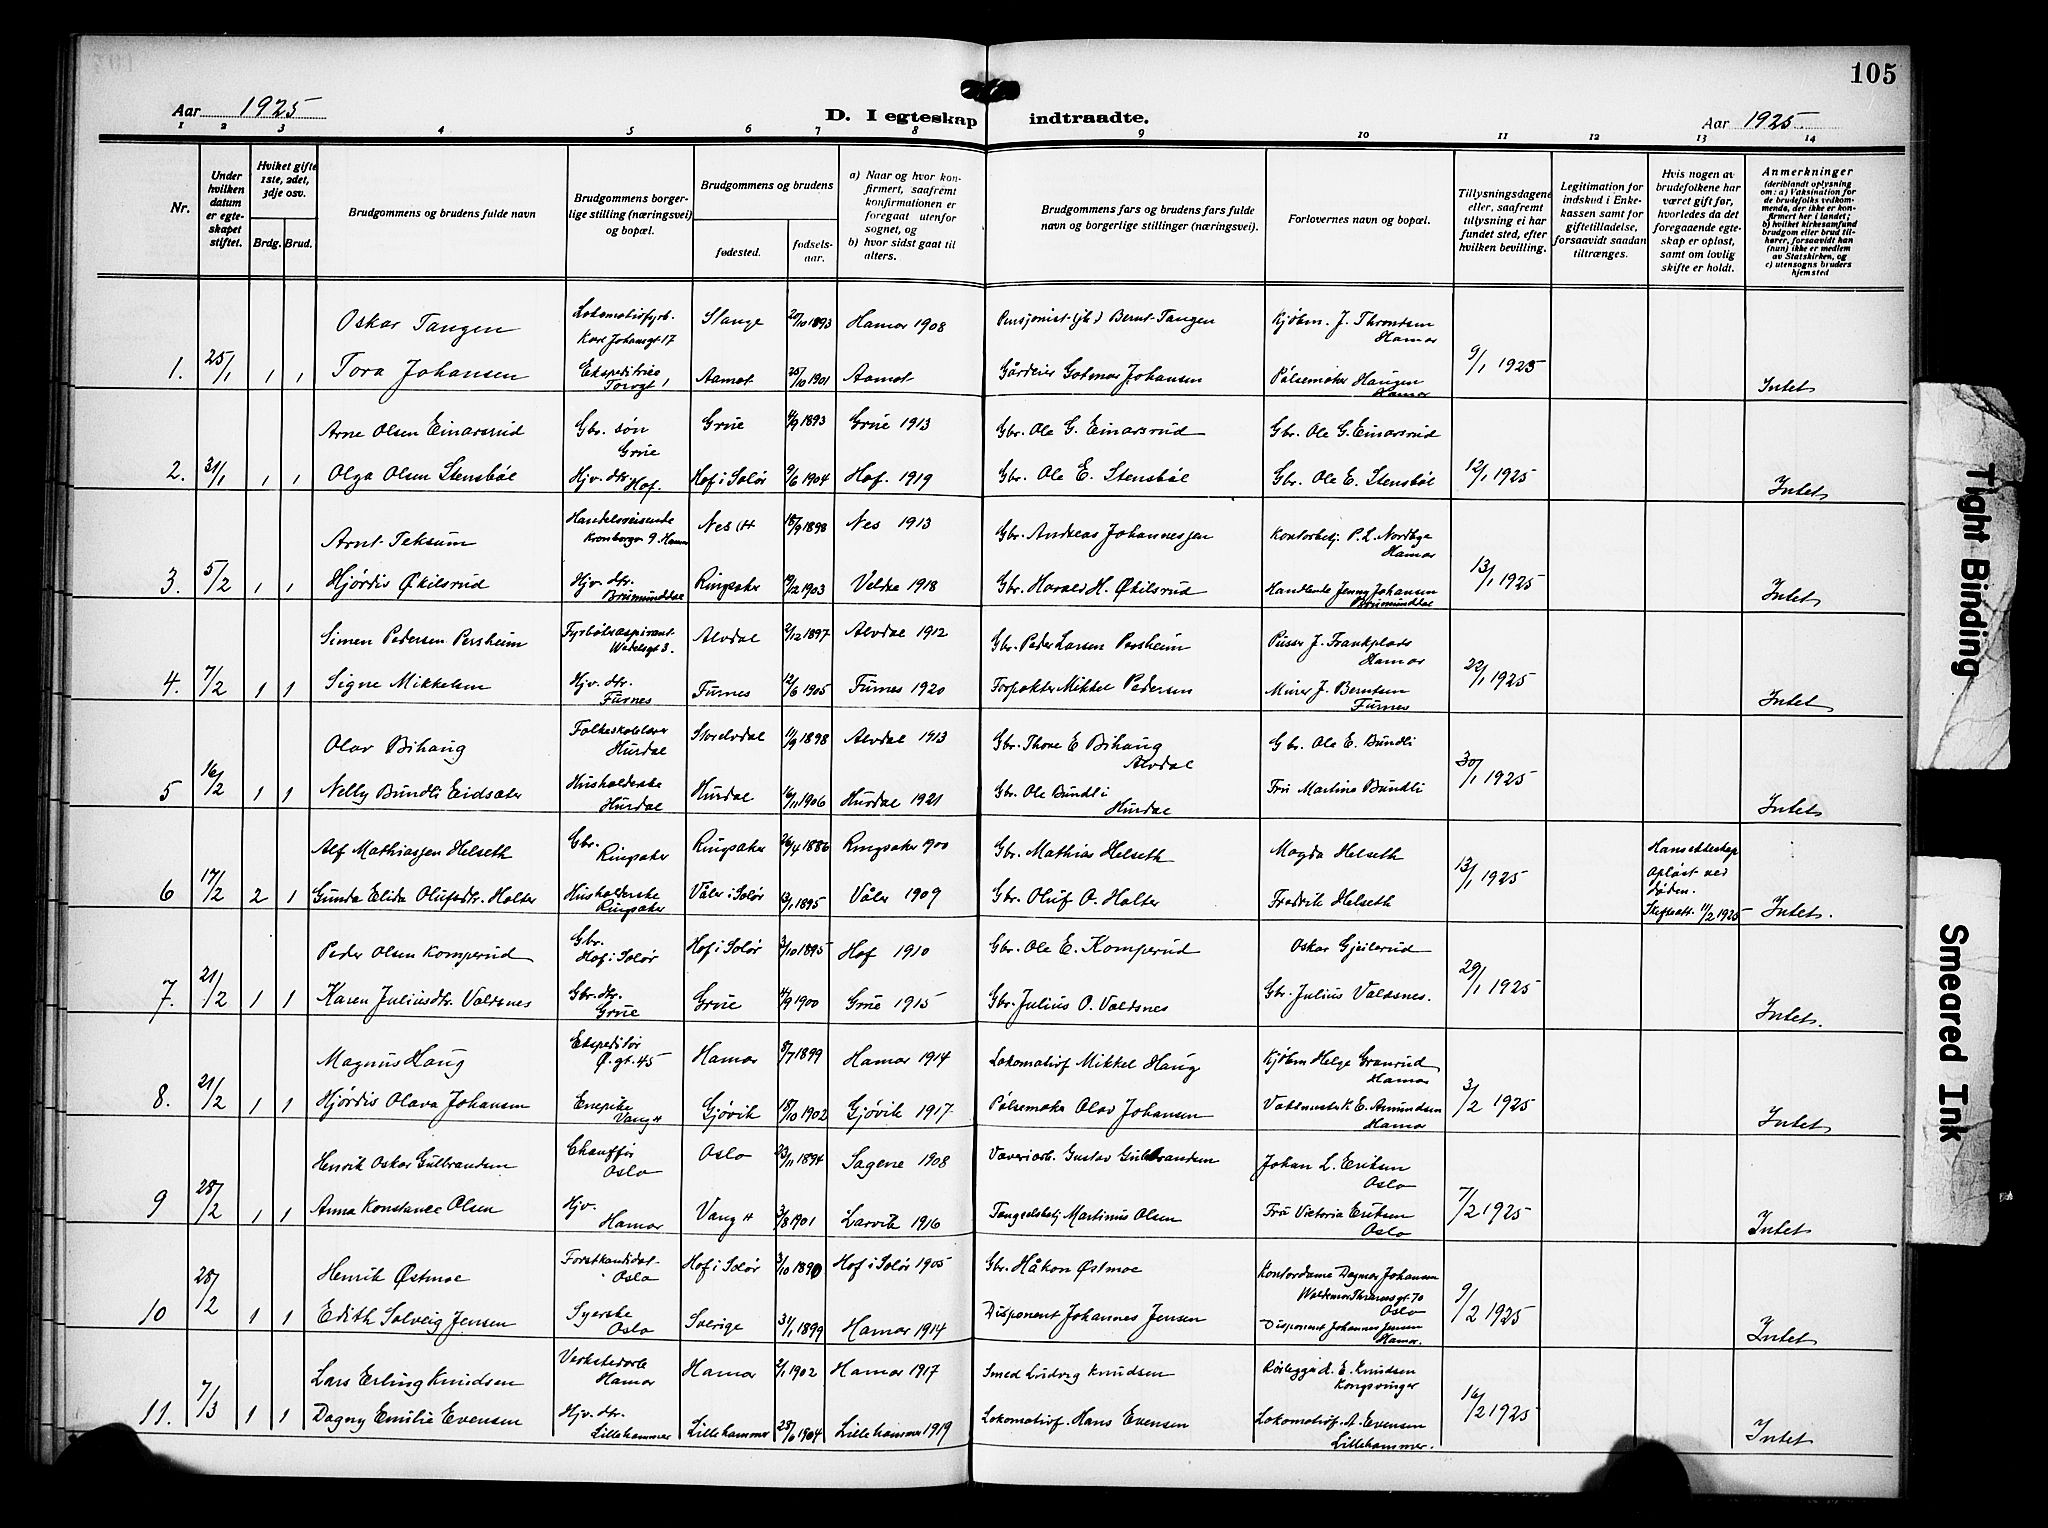 105
Aar 1925
D. I egteskap indtraadte.
Aar 1925.
1 2 3 4 5 6 7 8 9 10 11 12 13 14
Nr.
Under hvilken datum er egte-skapet stiftet.
Hvilket gifte 1ste, 2det, 3dje osv.
Brdg. Brud.
Brudgommens og brudens fulde navn
Brudgommens borger-lige stilling (næringsvei) og bopæl.
Brudgommens og brudens
fødested.
fødsels-aar.
a) Naar og hvor kon-firmert, saafremt konfirmationen er foregaat utenfor sognet, og
b) hvor sidst gaat til alters.
Brudgommens fars og brudens fars fulde navn og borgerlige stillinger (næringsvei).
Forlovernes navn og bopæl.
Tillysningsdagene eller, saafremt tillysning ei har fundet sted, efter hvilken bevilling.
Legitimation for indskud i Enke-kassen samt for giftetilladelse, forsaavidt saadan tiltrænges.
Hvis nogen av brudefolkene har været gift før, hvorledes da det foregaaende egte-skap er opløst, samt om lovlig skifte er holdt.
Anmerkninger
(deriblandt oplysning om: a) Vaksination for de brudefolks vedkom-mende, der ikke er kon-firmert her i landet; b) hvilket kirkesamfund brudgom eller brud til-hører, forsaavidt han (hun) ikke er medlem av Statskirken, og c) utensogns bruders hjemsted
Oskar Tangen Lokomotivfyrb. Karl Johansgt 17 Stange 25/10 1893 Hamar 1908 Pensjonist (jb.) Bernt Tangen Kjøbm. J. Throndsen Hamar
1. 25/1 1 1 Tora Johansen Ekspeditrise Torvgt 1 Aamot 25/10 1901 Aamot Gårdeier Gotmar Johansen Pølsemaker Haugen Hamar 9/1 1925 Intet
Arne Olsen Einarsrud Gbr. søn Grue Grue 4/9 1893 Grue 1913 Gbr. Ole G. Einarsrud Gbr. Ole G. Einarsrud
2. 31/1 1 1 Olga Olsen Stensbøl Hjv. dtr. Hof. Hof i Solør 9/6 1904 Hof. 1919 Gbr. Ole E. Stensbøl Gbr. Ole E. Stensbøl 12/1 1925 Intet
Arnt Teksum Handelsreisende Kronborgv 9. Hamar Nes H 18/9 1898 Nes 1913 Gbr. Andreas Johannessen Kontorbetj. P. L. Nordbye Hamar
3. 5/2 1 1 Hjørdis Økilsrud Hjv. dtr. Brumunddal Ringsaker 19/12 1903 Veldre 1918 Gbr. Harald H. Økilsrud Handlende Jenny Johansen Brumunddal 13/1 1925 Intet
Simen Pedersen Persheim Fyrbøteraspirant Wedelsgt 3. Alvdal 2/12 1897 Alvdal 1912 Gbr. Peder Larsen Persheim Pusser J. Frankplads Hamar
4. 7/2 1 1 Signe Mikkelsen Hjv. dtr. Furnes Furnes 12/6 1905 Furnes 1920 Forpakter Mikkel Pedersen Murer J. Berntsen Furnes 22/1 1925 Intet
Olav Bihaug Folkeskolelærer Hurdal Storelvdal 11/9 1898 Alvdal 1913 Gbr. Thore E Bihaug Alvdal Gbr. Ole E. Bundli
5 16/2 1 1 Nelly Bundli Eidsæter Husholderske Hurdal Hurdal 16/11 1906 Hurdal 1921 Gbr. Ole Bundli Hurdal Fru Martine Bundli 30/1 1925 Intet
Alf Mathiassen Helseth Gbr. Ringsaker Ringsaker 26/4 1886 Ringsaker 1900 Gbr. Mathias Helseth Magda Helseth
6 17/2 2 1 Gunda Elida Olufsdtr. Holter Husholderske Ringsaker Våler i Solør 13/1 1895 Våler 1909 Gbr. Oluf O. Holter Fredrik Helseth 13/1 1925 Hans ekteskap opløst ved døden. Skifteatt. 11/2 1925 Intet.
Peder Olsen Komperud Gbr. Hof i Solør Hof i Solør 3/10 1895 Hof 1910 Gbr. Ole E. Komperud Oskar Gjeilerud
7. 21/2 1 1 Karen Juliusdtr. Valdsnes Gbr. dtr. Grue Grue 4/9 1900 Grue 1915 Gbr. Julius O. Valdsnes Gbr. Julius Valdsnes. 29/1 1925 Intet.
Magnus Haug Ekspeditør Ø. gt. 45 Hamar 8/7 1899 Hamar 1914 Lokomotivf Mikkel Haug Kjøbm Helge Granrud Hamar
8. 21/2 1 1 Hjørdis Olava Johansen Enepike Vang H Gjøvik 18/10 1902 Gjøvik 1917 Pølsemaker Olav Johansen K. E. Amundsen Hamar 3/2 1925 Intet
Henrik Oskar Gulbrandsen Chauffør Oslo Oslo 23/11 1894 Sagene 1908 Væveriarb. Gustav Gulbrandsen Johan L. Eriksen Oslo
9 28/2 1 1 Anna Konstance Olsen Hjv. Hamar Vang H 3/8 1901 Larvik 1916 Martinius Olsen Fru Victoria Eriksen Oslo 7/2 1925 Intet
Henrik Østmoe Forstkandidat Oslo Hof i Solør 3/10 1890 Hof i Solør 1905 Gbr. Håkon Østmoe Kontordame Dagmar Johansen Waldemar Thranesgt 70 Oslo
10 28/2 1 1 Edith Solveig Jensen Syerske Oslo Sverige 31/1 1899 Hamar 1914 Disponent Johannes Jensen Disponent Johannes Jensen Hamar. 9/2 1925 Intet
Lars Erling Knudsen Verkstedarb Hamar Hamar 2/1 1902 Hamar 1917 Smed Ludvig Knudsen Rørlegger A. E. Knudsen Kongsvinger
11. 7/3 1 1 Dagny Emilie Evensen Hjv. dtr. Lillehammer Lillehammer 28/6 1904 Lillehammer 1919 Lokomotivf. Hans Evensen Lokomotivf. A. Evensen Lillehammer. 16/2 1925 Intet
Tight Binding
Smeared Ink